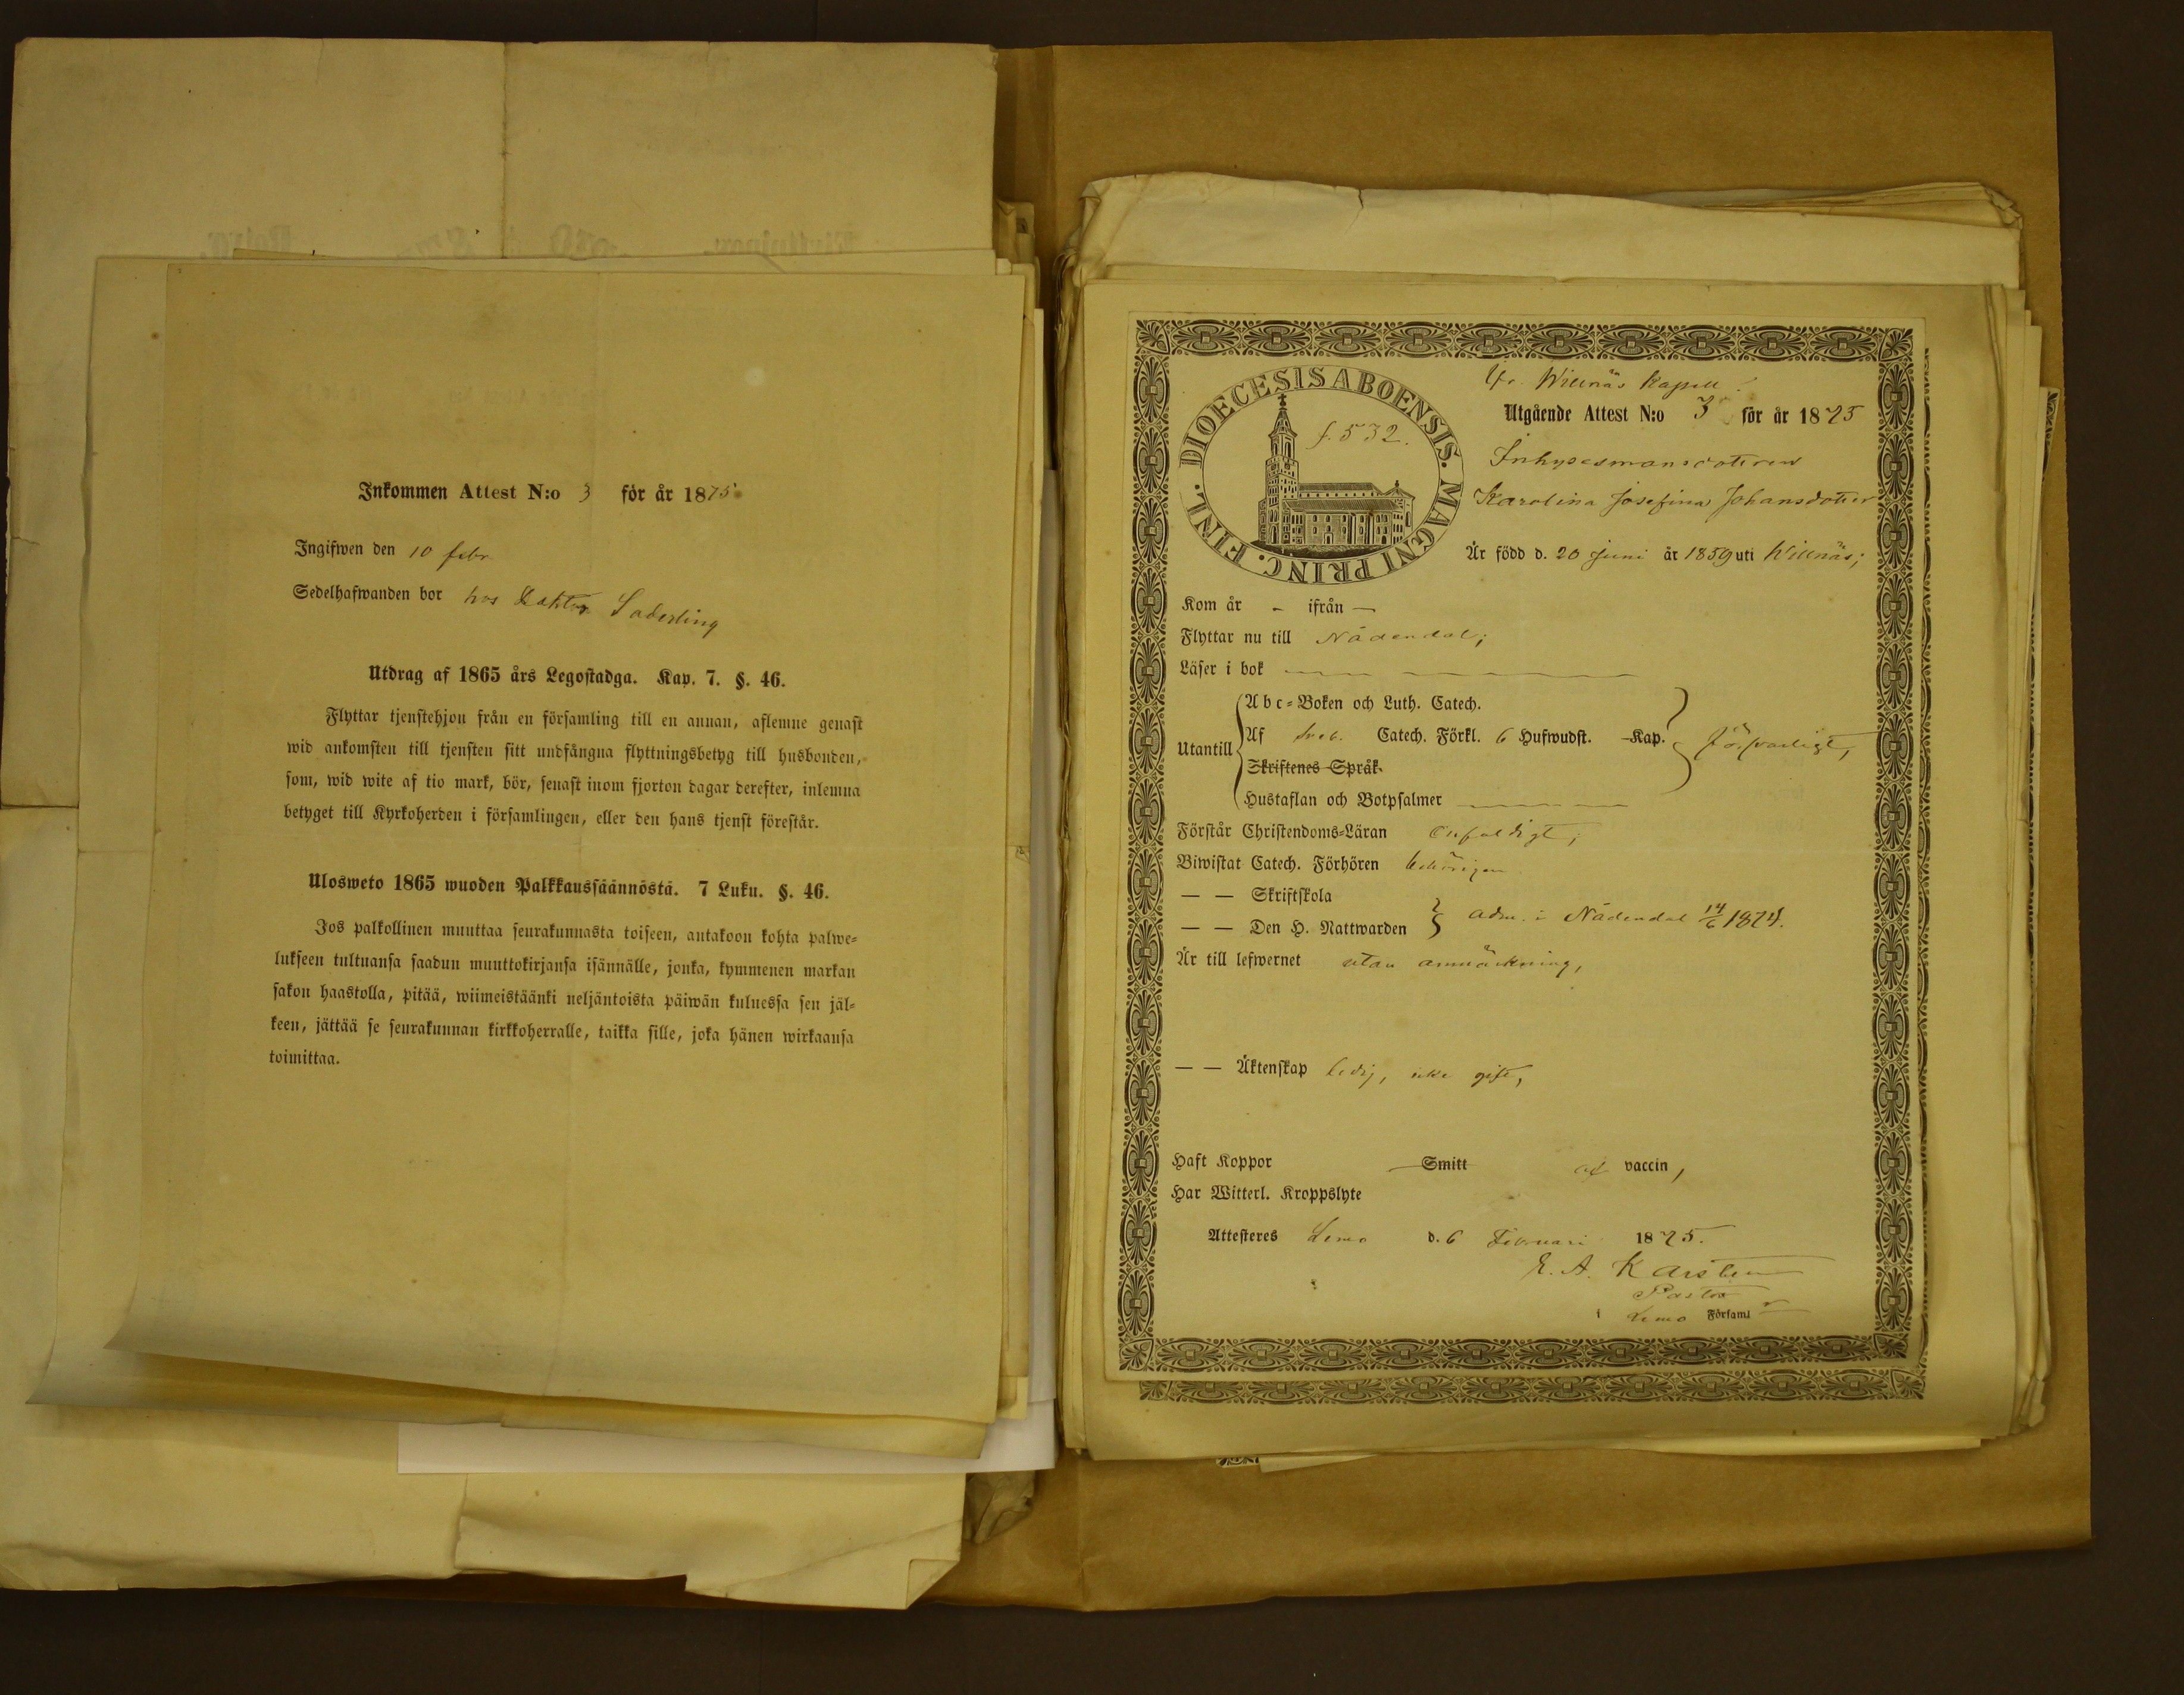 Inkommen Attest N:o 3 för år 1875
Ingifwen den 10 febr
Sedelhafwanden bor hos Doktor Saderling
Utdrag af 1865 års Legostadga. Kap. 7. §. 46.
Flyttar tjenstehjon från en församling till en annan, aflemne genast
wid ankomsten till tjensten sitt undfångna flyttningsbetyg till husbonden,
som, wid wite af tio mark, bör, senast inom fjorton dagar derefter, inlemna
betyget till Kyrkoherden i församlingen, eller den hans tjenst förestår.
Ulosweto 1865 wuoden Palkkaussäännöstä. 7 Luku. §. 46.
Jos palkollinen muuttaa seurakunnasta toiseen, antakoon kohta palwe=
lukseen tultuansa saadun muuttokirjansa isännälle, jonka, kymmenen markan
sakon haastolla, pitää, wiimeistäänki neljäntoista päiwän kuluessa sen jäl=
keen, jättää se seurakunnan kirkkoherralle, taikka sille, joka hänen wirkaansa
toimittaa.
DIOECESIS ABOENSIS. MAGNI PRINC. FINL.
f. 532.
fr. Willnäs Kapell
Utgående Attest N:o 3 för år 1875
Inhysesmansdotren
Karolina Josefina Johansdotter
Är född d. 20 Juni år 1859 uti Willnäs;
Kom år – ifrån —
Flyttar nu till Nådendal;
Läser i bok
Abc=Boken och Luth. Catech.
Utantill Af Sveb. Catech. Förkl. 6 Hufwudst. Kap. försvarligt,
Skriftenes Språk.
Hustaflan och Botpsalmer
Förstår Christendoms=Läran enfaldigt;
Biwistat Catech. Förhören behörigen
— — Skriftskola
— — Den H. Nattwarden adm. i Nådendal 14/6 1874.
Är till lefwernet utan anmärkning,
— — Äktenskap ledig, icke gift,
Haft Koppor Smitt af vaccin,
Har Witterl. Kroppslyte
Attesteres Lemo d. 6 Februari 1875.
E. A. Karsten
Pastor
i Lemo Församl